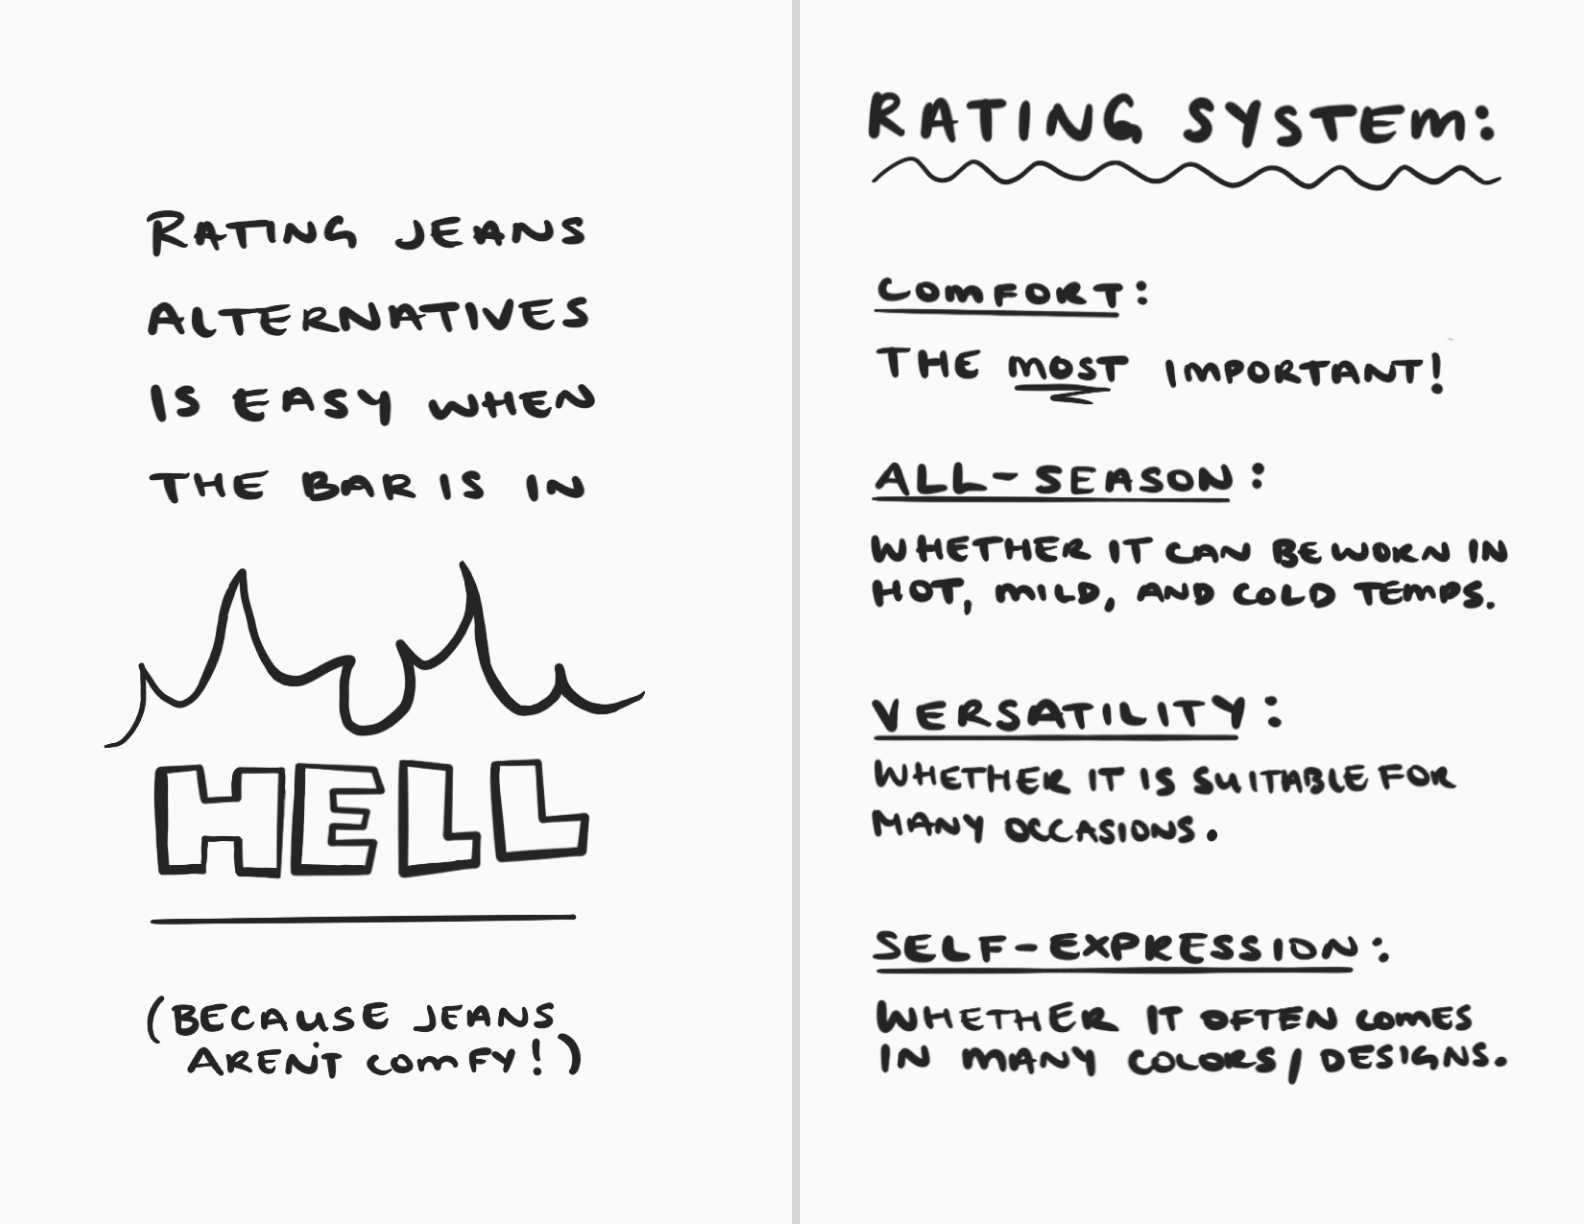 RATING JEANS
ALTERNATIVES
IS EASY WHEN
THE BAR IS IN
HELL
(BECAUSE JEANS
AREN'T COMFY!)
RATING SYSTEM:
COMFORT:
THE MOST IMPORTANT!
ALL-SEASON:
WHETHER IT CAN BE WORN IN
HOT, MILD, AND COLD TEMPS.
VERSATILITY:
WHETHER IT IS SUITABLE FOR
MANY OCCASIONS.
SELF-EXPRESSION:
WHETHER IT OFTEN COMES
IN MANY COLORS/DESIGNS.